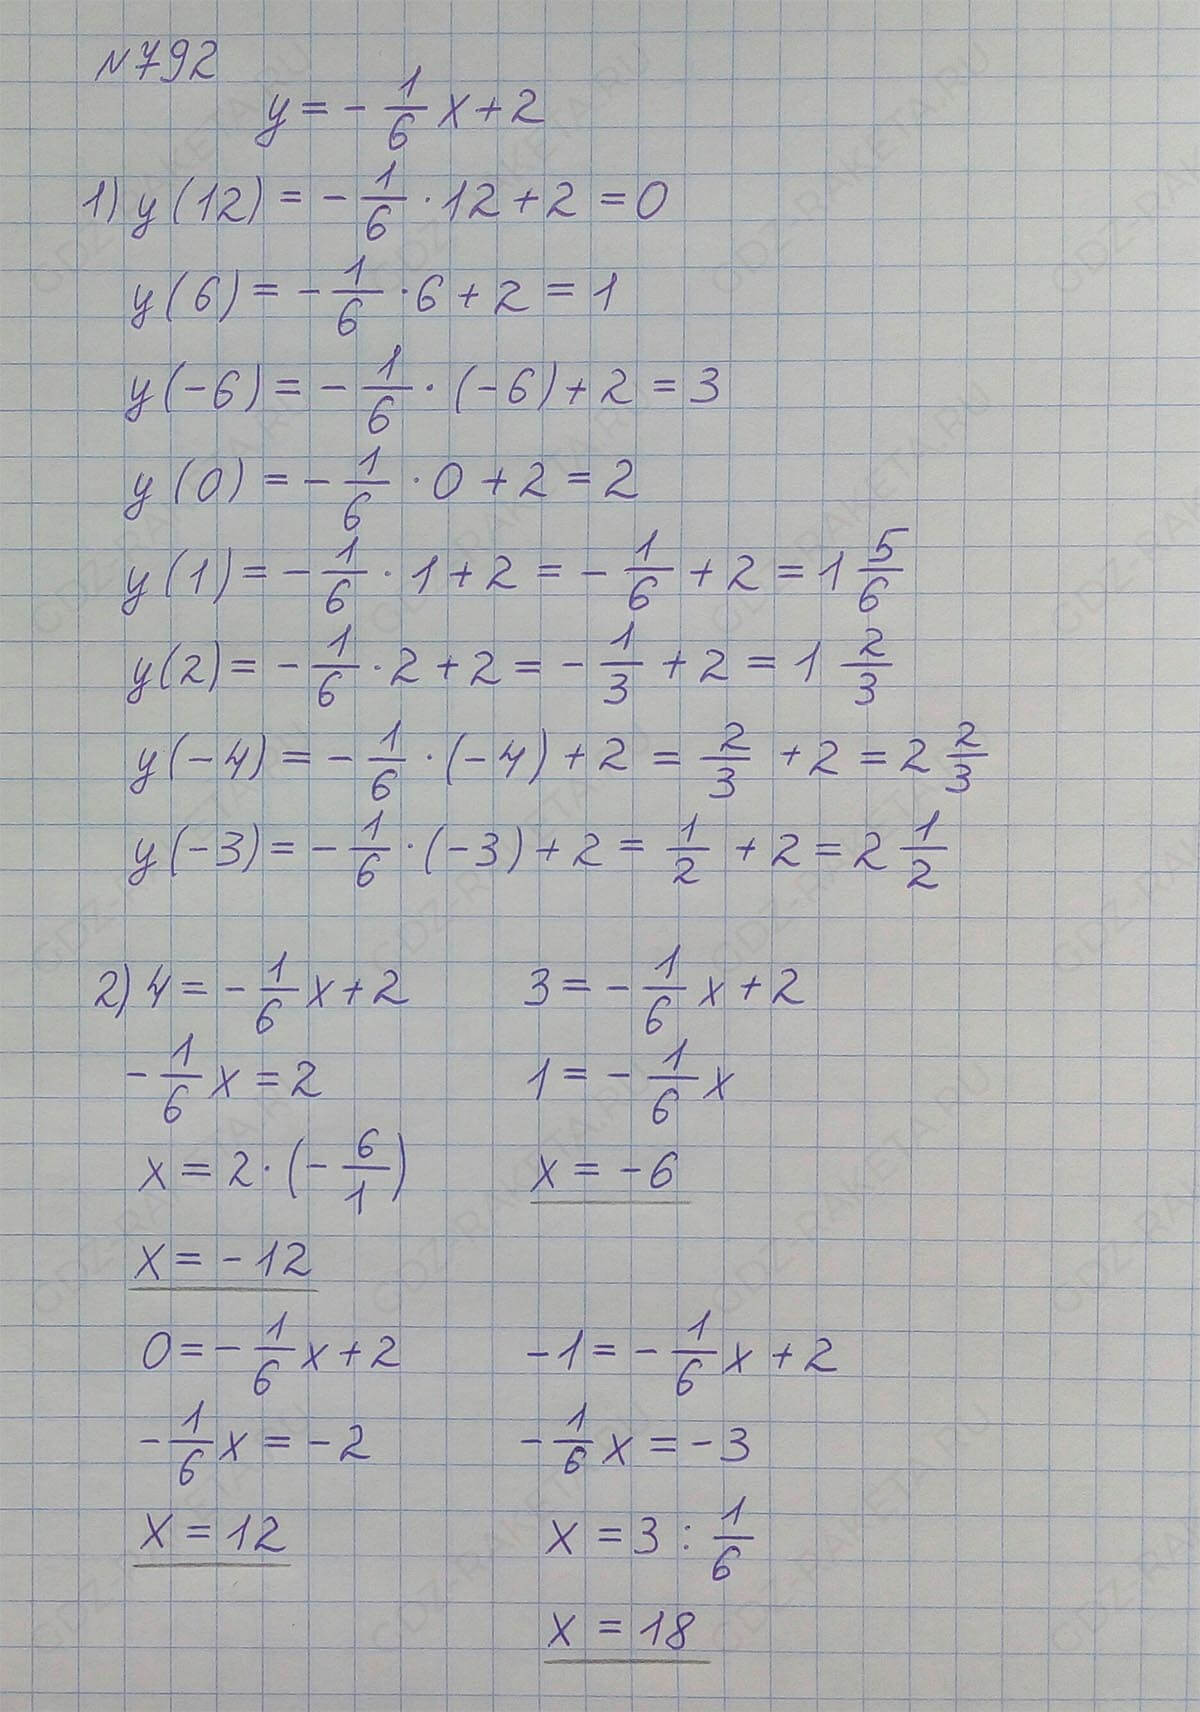 №792
y = -1/6 x + 2
1) y(12) = -1/6 · 12 + 2 = 0
y(6) = -1/6 · 6 + 2 = 1
y(-6) = -1/6 · (-6) + 2 = 3
y(0) = -1/6 · 0 + 2 = 2
y(1) = -1/6 · 1 + 2 = -1/6 + 2 = 1 5/6
y(2) = -1/6 · 2 + 2 = -1/3 + 2 = 1 2/3
y(-4) = -1/6 · (-4) + 2 = 2/3 + 2 = 2 2/3
y(-3) = -1/6 · (-3) + 2 = 1/2 + 2 = 2 1/2
2) 4 = -1/6 x + 2
-1/6 x = 2
x = 2 · (-6/1)
x = -12
3 = -1/6 x + 2
1 = -1/6 x
x = -6
0 = -1/6 x + 2
-1/6 x = -2
x = 12
-1 = -1/6 x + 2
-1/6 x = -3
x = 3 : 1/6
x = 18
GDZ-RAKETA.RU